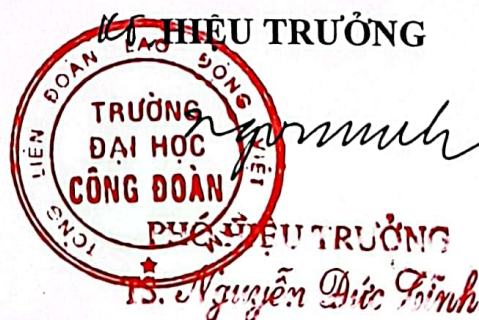 HIỆU TRƯỞNG
TỔNG LIÊN ĐOÀN LAO ĐỘNG VIỆT NAM
TRƯỜNG
ĐẠI HỌC
CÔNG ĐOÀN
PHÓ HIỆU TRƯỞNG
TS. Nguyễn Đức Tĩnh